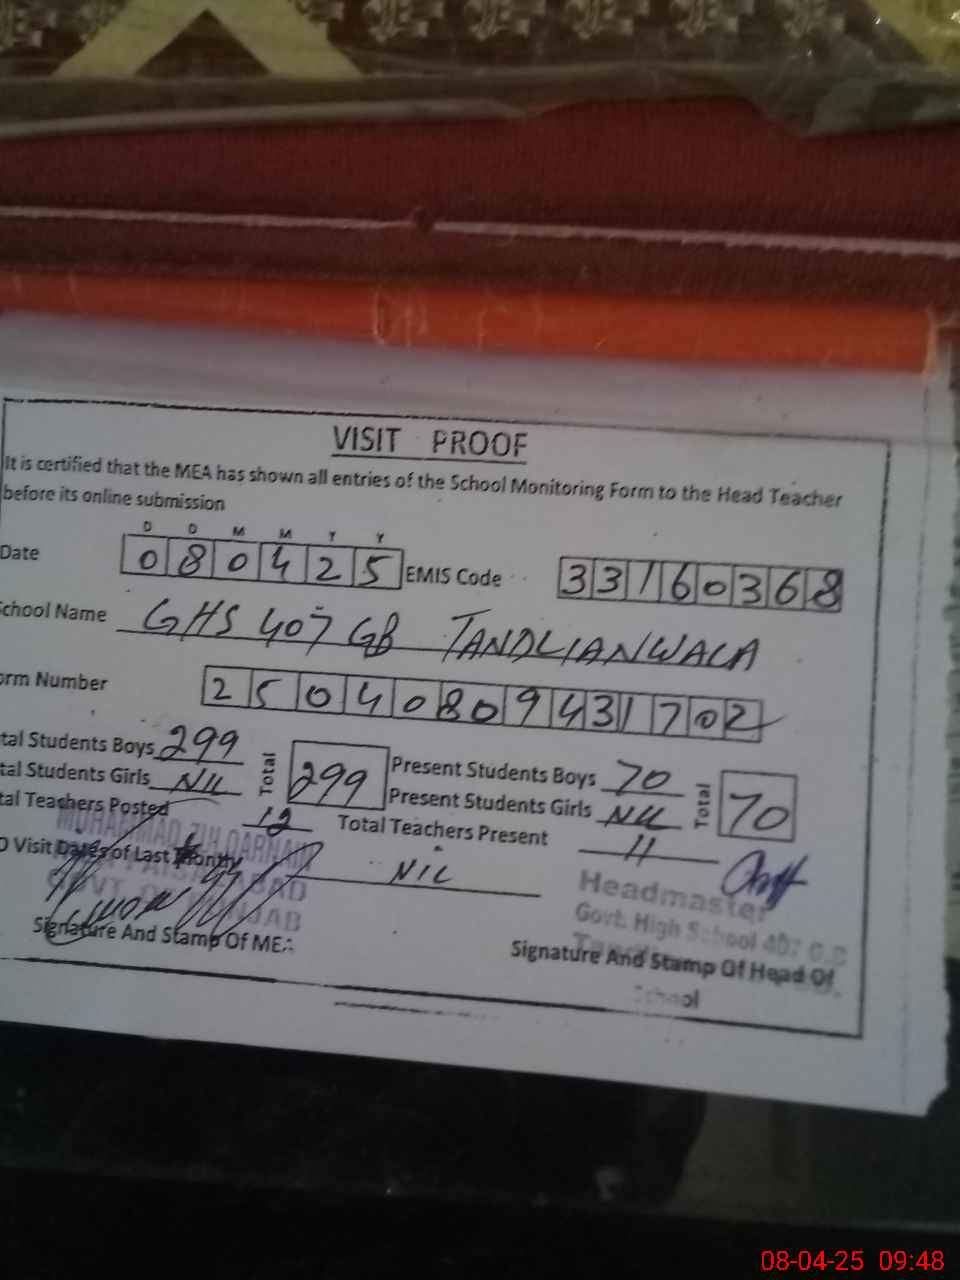 VISIT PROOF
It is certified that the MEA has shown all entries of the School Monitoring Form to the Head Teacher
before its online submission
D D M M Y Y
Date 080425 EMIS Code 33160368
School Name GHS 407 GB TANDLIANWALA
orm Number 25040809431702
tal Students Boys 299 Total 299 Present Students Boys 70 Total 70
tal Students Girls NIL Present Students Girls NIL
tal Teachers Posted 12 Total Teachers Present 11
O Visit Dates of Last Month NIL
MUHAMMAD ZULQARNAIN
FAISALABAD
GOVT. OF PUNJAB
Headmaster
Govt. High School 407 G.B
Signature And Stamp Of MEA
Signature And Stamp Of Head Of
School
08-04-25 09:48